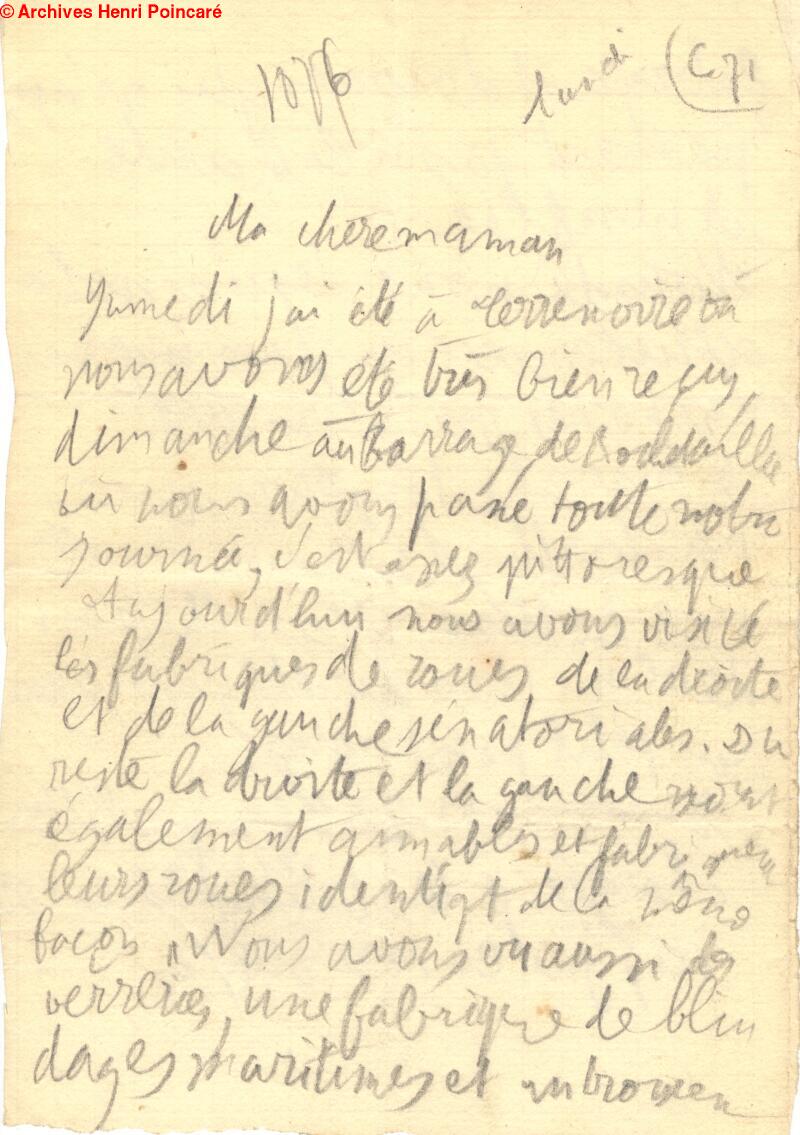 © Archives Henri Poincaré
1876
lundi
C 71
Ma chère maman
Samedi j'ai été à Terrenoire où
nous avons été très bien reçus,
dimanche au barrage de
où nous avons passé toute notre
journée, c'est assez pittoresque
Aujourd'hui nous avons visité
les fabriques de roues de la droite
et de la gauche sénatoriales. Du
reste la droite et la gauche sont
également aimables et fabriquent
leurs roues identiqt de la même
façon. Nous avons vu aussi des
verreries, une fabrique de blin
dages maritimes et